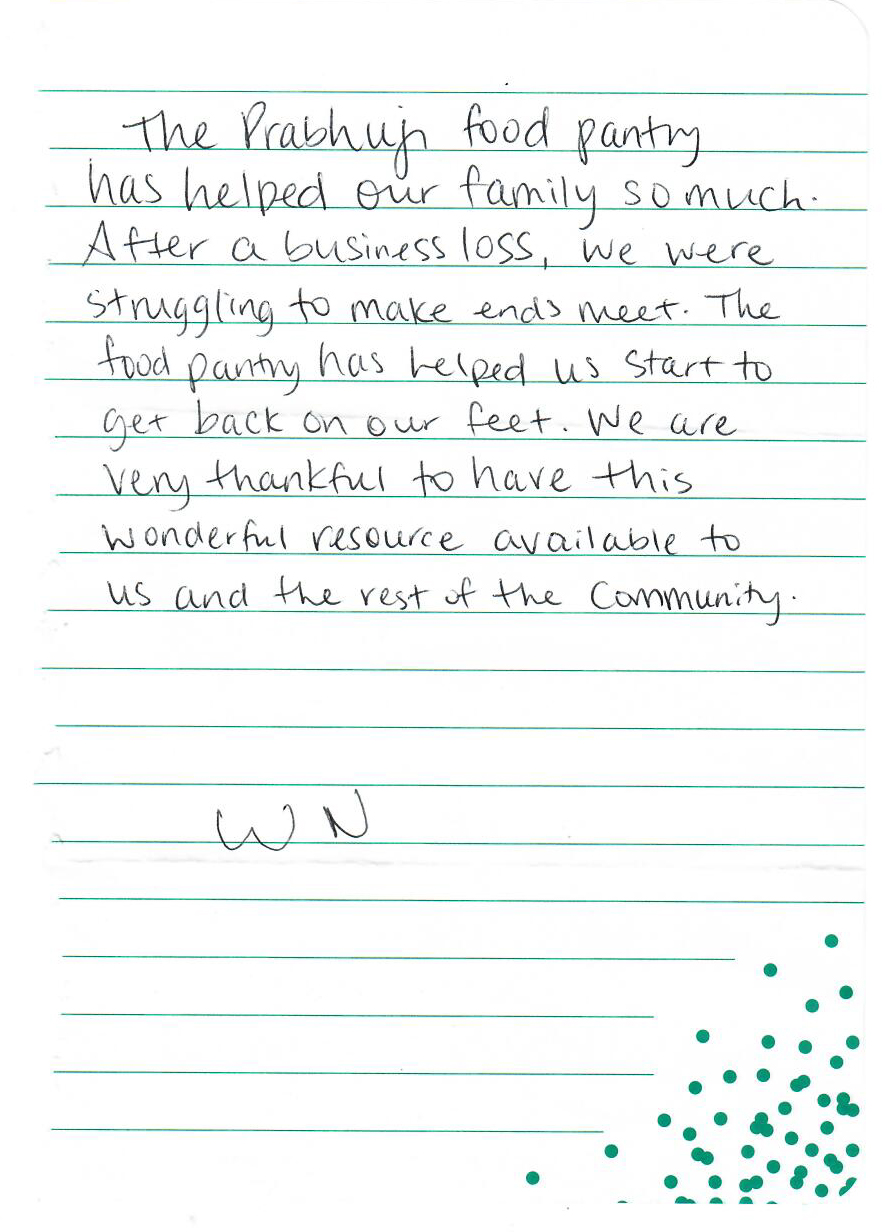 The Prabhuji food pantry
has helped our family so much.
After a business loss, we were
struggling to make ends meet. The
food pantry has helped us start to
get back on our feet. We are
very thankful to have this
wonderful resource available to
us and the rest of the Community.
W N